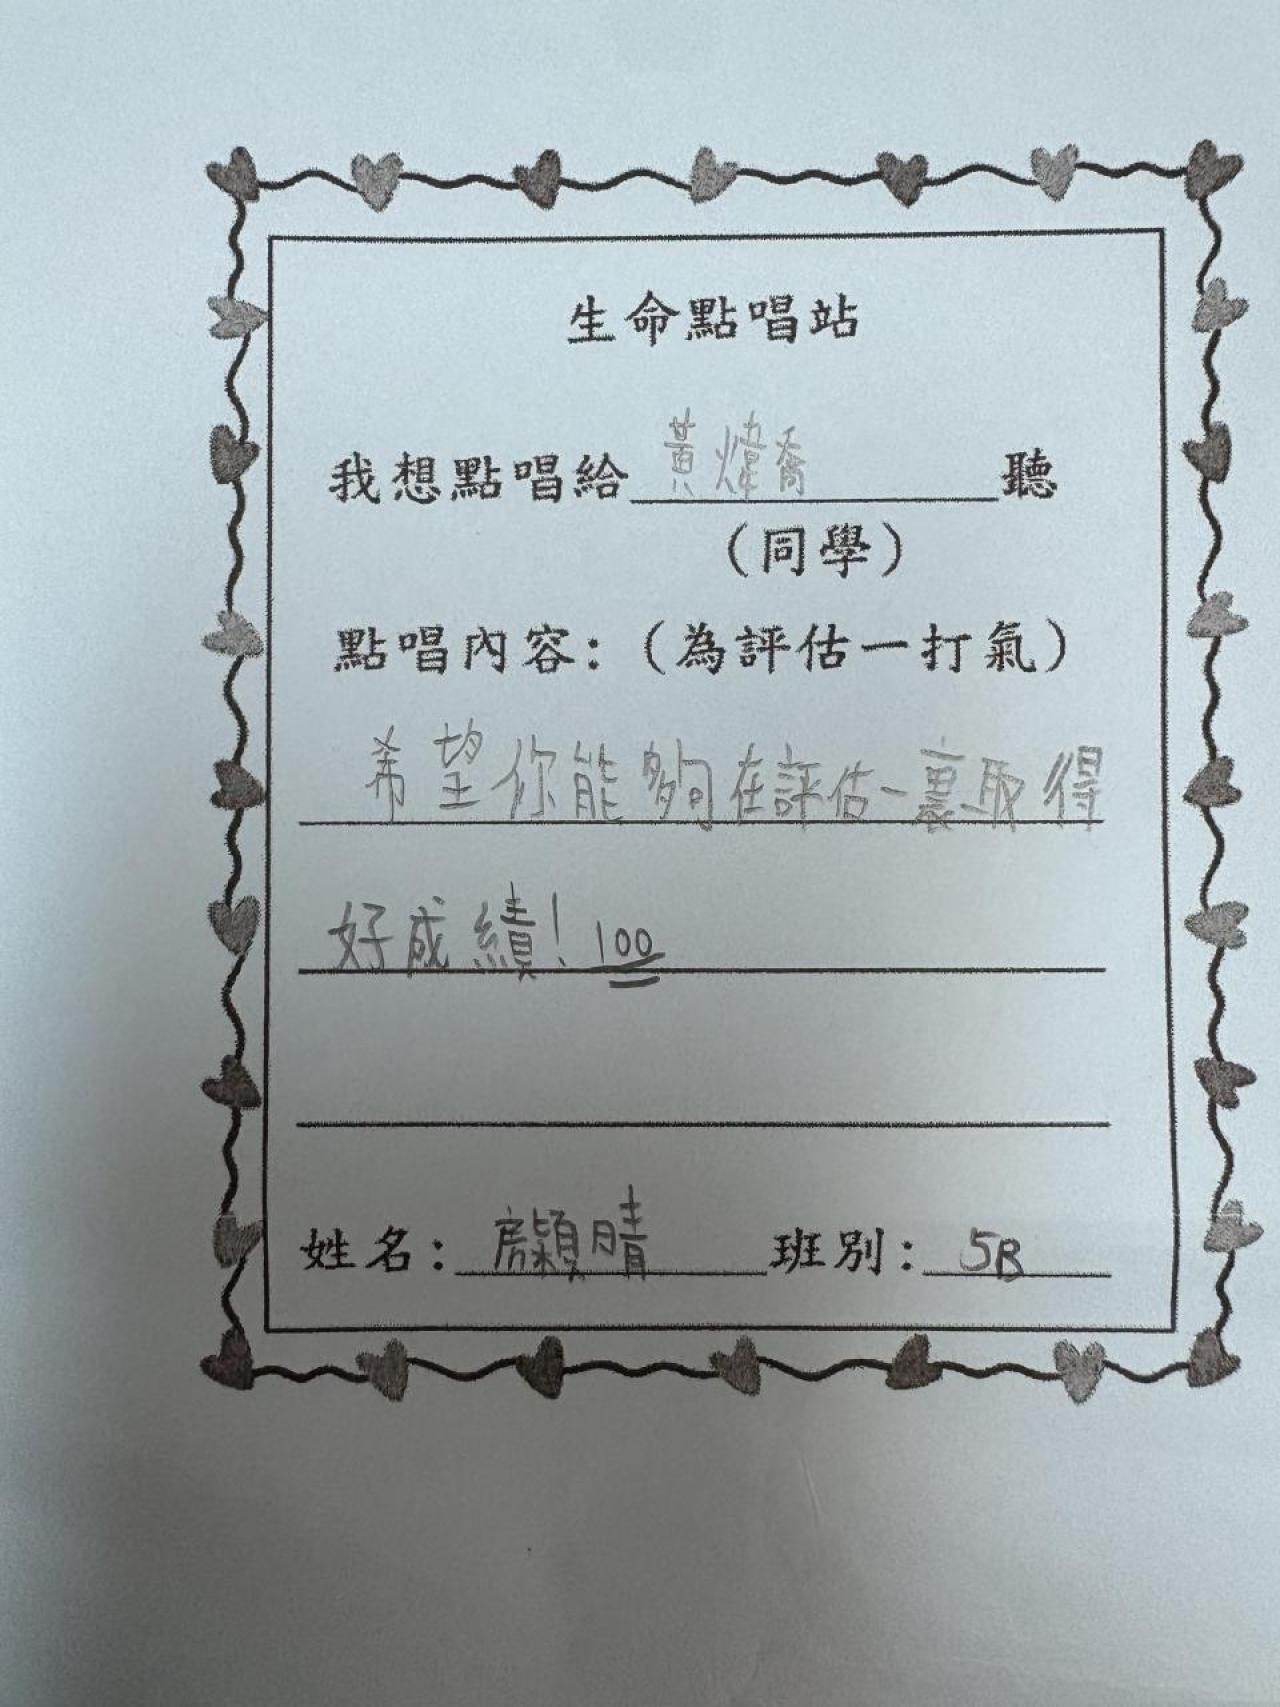 生命點唱站
我想點唱給黃煒喬聽
（同學）
點唱內容：（為評估一打氣）
希望你能夠在評估一裏取得
好成績！100
姓名：房穎晴 班別：5B